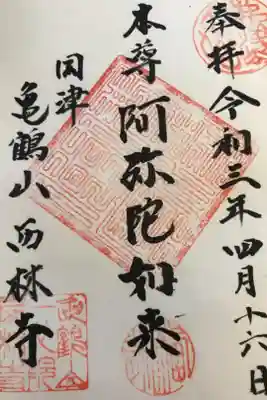 奉拝 令和三年四月十六日
本尊 阿弥陀如来
亀鶴山 西林寺